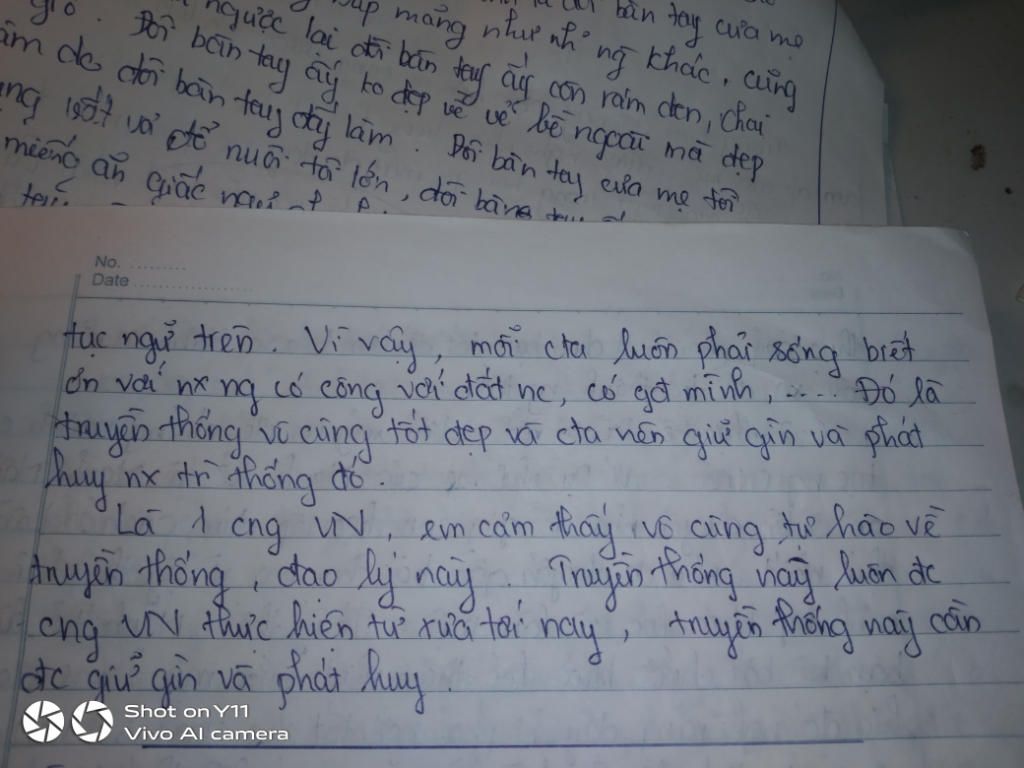 gió.
ngược lại đôi bàn tay ấy còn rám đen, chai
mảng như nh ng khác, cũng
bàn tay của mẹ
Đôi bàn tay ấy ko đẹp về vẻ bề ngoài mà đẹp
đôi bàn tay đấy làm. Đôi bàn tay của mẹ tôi
vả để nuôi tôi lớn, đôi bàn
miếng ăn giấc
No. .........
Date ..................
tục ngữ trên. Vì vậy, mỗi cta luôn phải sống biết
ơn với nx ng có công với đất nc, có gđ mình, ..... Đó là
truyền thống vô cùng tốt đẹp và cta nên giữ gìn và phát
huy nx tr` thống đó.
Là 1 cng VN, em cảm thấy vô cùng tự hào về
truyền thống, đạo lý này. Truyền thống này luôn đc
cng VN thực hiện từ xưa tới nay, truyền thống này cần
đc giữ gìn và phát huy.
Shot on Y11
Vivo AI camera